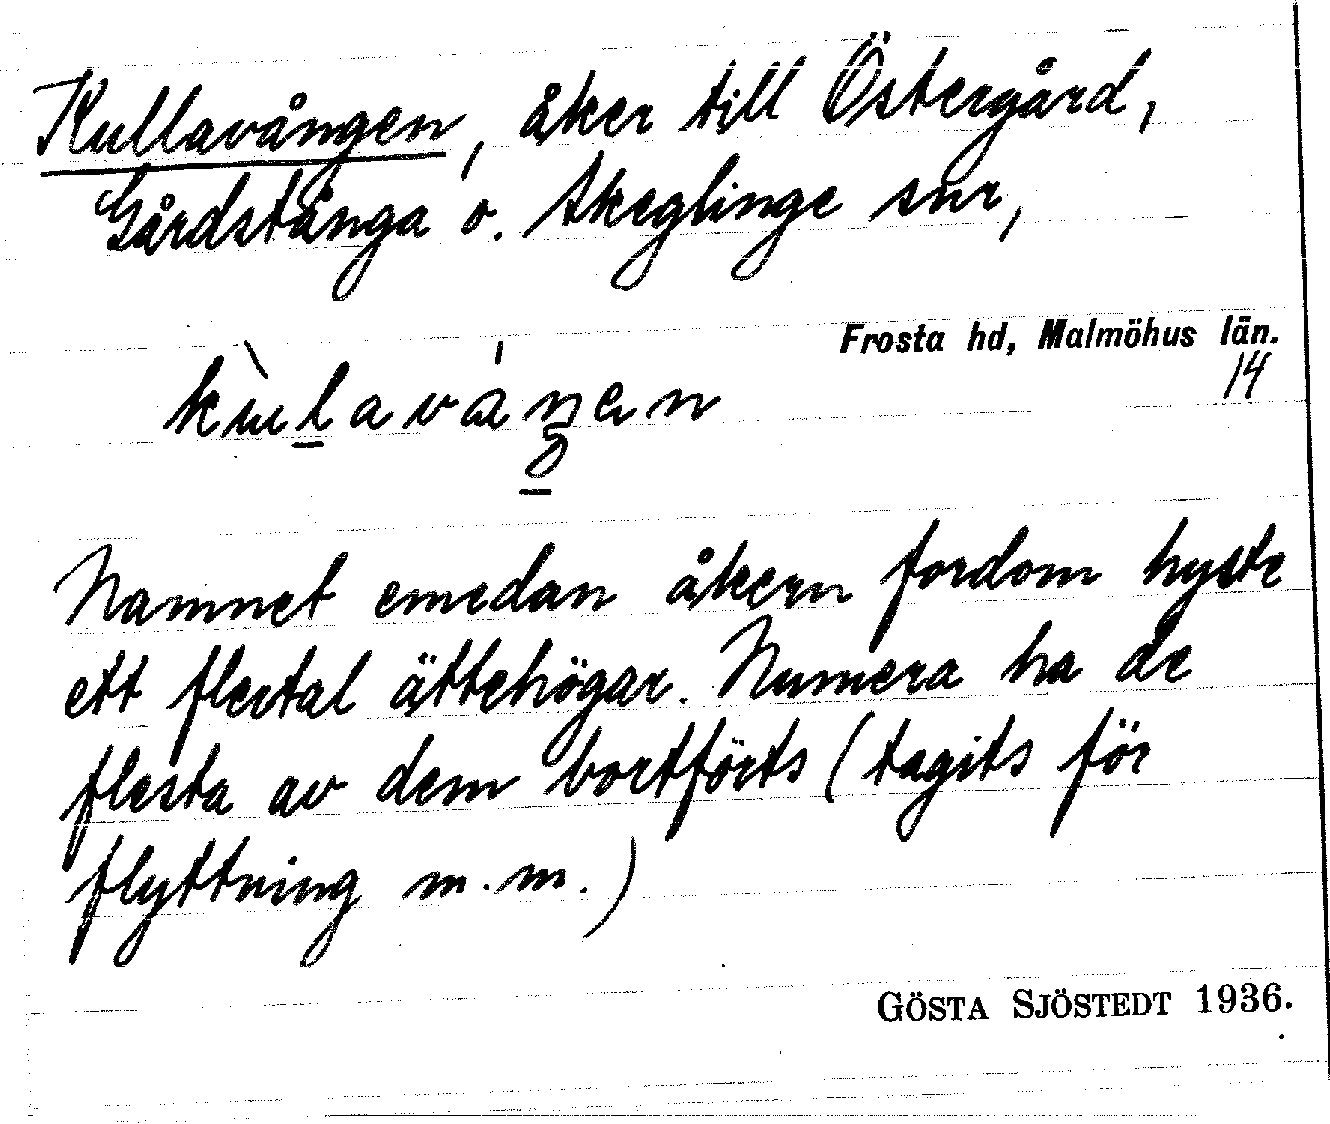 Kullavången, åker till Östergård,
Gårdstånga o. Skeglinge snr,
Frosta hd, Malmöhus län.
14
Namnet emedan åkern fordom hyste
ett flertal ättehögar. Numera ha de
flesta av dem bortförts (tagits för
flyttning m.m.)
GÖSTA SJÖSTEDT 1936.